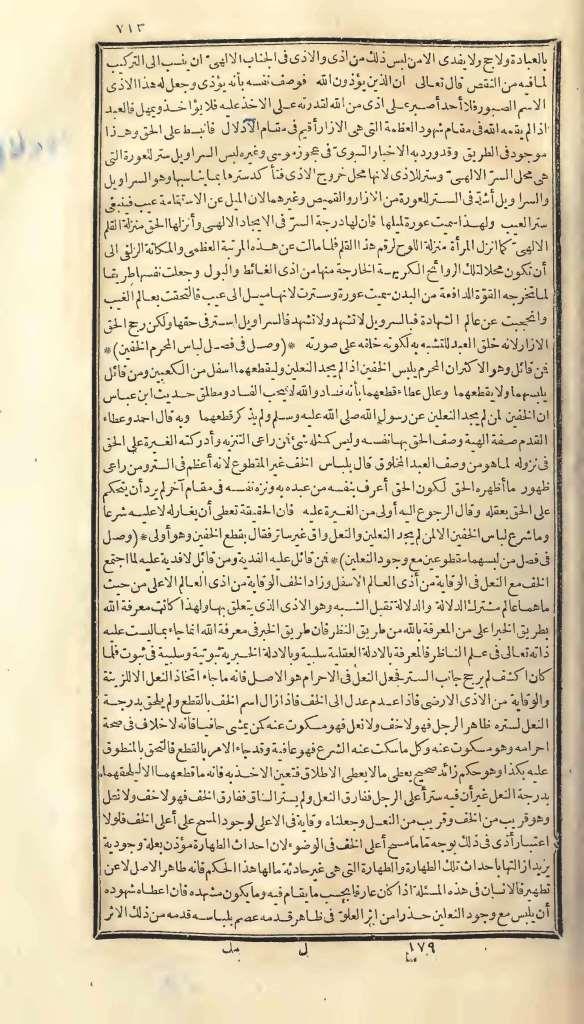 ٧١٣
بالعبادة ولا حج ولا يفدى الا من لبس ذلك من اذى والاذى فى الجناب الالهى ان ينسب الى التركيب
لما فيه من النقص قال تعالى ان الذين يؤذون الله فوصف نفسه بأنه يؤذى وجعل له هذا الاذى
الاسم الصبور فلا أحد أصبر على اذى من الله لقدرته على الاخذ عليه فلا يؤاخذ ويمهل فالعبد
اذا لم يقمه الله فى مقام شهود العظمة التى هى الازار أقيم فى مقام الادلال فانبسط على الحق وهذا
موجود فى الطريق وقد ورد به الاخبار النبوى فى عجوز موسى وغيره لبس السراويل ستر للعورة التى
هى محل السرّ الالهى وستر للاذى لانها محل خروج الاذى فتأكد سترها بما يناسبها وهو السراويل
والسراويل أشدّ فى الستر للعورة من الازار والقميص وغيرهما لان الميل عن الاستقامة عيب فينبغى
ستر العيب ولهذا سميت عورة لميلها فان لها درجة السرّ فى الايجاد الالهى وأنزلها الحق منزلة القلم
الالهى كما انزل المرأة منزلة اللوح لرقم هذا القلم فلما مالت عن هذه المرتبة العظمى والمكانة الزلفى الى
أن تكون محلا لتلك الروائح الكريهة الخارجة منها من اذى الغائط والبول وجعلت نفسها طريقا
لما تخرجه القوّة الدافعة من البدن سميت عورة وسترت لانها ميل الى عيب فالتحقت بعالم الغيب
وانحجبت عن عالم الشهادة فبالسراويل لا تشهد ولا تشهد فالسراويل استر فى حقها ولكن رجح الحق
الازار لانه خلق العبد للتشبه به لكونه خلقه على صورته *(وصل فى فصل لباس المحرم الخفين)*
فمن قائل وهو الاكثر ان المحرم يلبس الخفين اذا لم يجد النعلين وليقطعهما اسفل من الكعبين ومن قائل
يلبسهما ولا يقطعهما وعال عطاء قطعهما بأنه فساد والله لا يحب الفساد ومطلق حديث ابن عباس
ان الخفين لمن لم يجد النعلين عن رسول الله صلى الله عليه وسلم ولم يذكر قطعهما وبه قال احمد وعطاء
القدم صفة الهية وصف الحق بها نفسه وليس كمثله شئ فمن راعى التنزيه وأدركته الغيرة على الحق
فى نزوله لما هو من وصف العبد المخلوق قال بلباس الخف غير المقطوع لانه أعظم فى الستر ومن راعى
ظهور ما أظهره الحق لكون الحق أعرف بنفسه من عبده به ونزه نفسه فى مقام آخر لم يرد أن يتحكم
على الحق بعقله وقال الرجوع اليه أولى من الغيرة عليه فان الحقيقة تعطى أن يغار له لا عليه شرعا
وما شرع لباس الخفين الا لمن لم يجد النعلين والنعل واق غير ساتر فقال بقطع الخفين وهو أولى *(وصل
فى فصل من لبسهما مقطوعين مع وجود النعلين)* فمن قائل عليه الفدية ومن قائل لا فدية عليه لما اجتمع
الخف مع النعل فى الوقاية من أذى العالم الاسفل وزاد الخف الوقاية من اذى العالم الاعلى من حيث
ماهما عالم مشترك الدلالة والدلالة تقبل الشبه وهو الاذى الذى يتعلق بها ولهذا كانت معرفة الله
بطريق الخبر اعلى من المعرفة بالله من طريق النظر فان طريق الخبر فى معرفة الله انما جاء بما ليست عليه
ذاته تعالى فى علم الناظر فالمعرفة بالادلة العقلية سلبية وبالادلة الخبرية ثبوتية وسلبية فى ثبوت فلما
كان اكشف لم يرجح جانب الستر فجعل النعل فى الاحرام هو الاصل فانه ما جاء اتخاذ النعل الا للزينة
والوقاية من الاذى الارضى فاذا عدم عدل الى الخف فاذا زال اسم الخف بالقطع ولم يلحق بدرجة
النعل لستره ظاهر الرجل فهو لا خف ولا نعل فهو مسكوت عنه كمن يمشى حافيا فانه لا خلاف فى صحة
احرامه وهو مسكوت عنه وكل ما سكت عنه الشرع فهو عافية وقد جاء الامر بالقطع فالتحق بالمنطوق
عليه بكذا وهو حكم زائد صحيح يعطى ما لا يعطى الاطلاق فتعين الاخذ به فانه ما قطعهما الا ليلحقهما
بدرجة النعل غير أن فيه سترا على الرجل ففارق النعل ولم يستر الساق ففارق الخف فهو لا خف ولا نعل
وهو قريب من الخف وقريب من النعل وجعلناه وقاية فى الاعلى لوجود المسح على أعلى الخف فلولا
اعتبار أذى فى ذلك بوجه ما ما مسح أعلى الخف فى الوضوء لان احداث الطهارة مؤذن بعلة وجودية
يريد ازالتها باحداث تلك الطهارة والطهارة التى هى غير حادثة مالها هذا الحكم فانه طاهر الاصل لا عن
تطهير فالانسان فى هذه المسئلة اذا كان عارفا بحسب ما يقام فيه وما يكون مشهده فان اعطاه شهوده
أن يلبس مع وجود النعلين حذرا من اثر العلو فى ظاهر قدمه عصم بلباسه قدمه من ذلك الاثر
١٧٩ ل